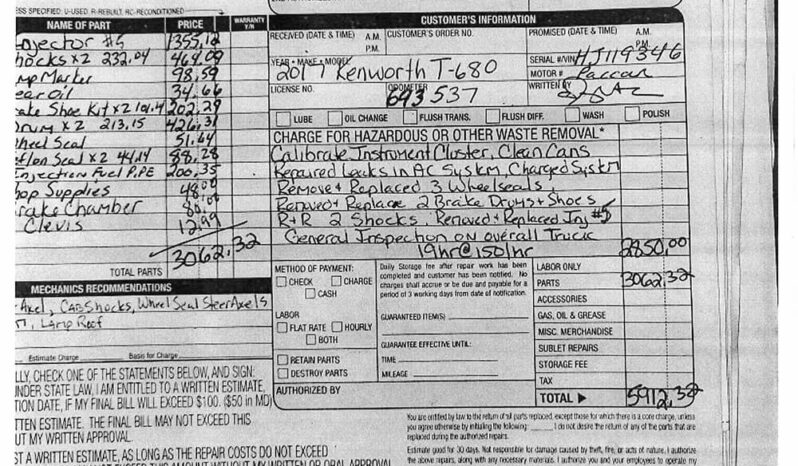 ESS SPECIFIED: U-USED, R-REBUILT, RC-RECONDITIONED
NAME OF PART PRICE WARRANTY Y/N
njector #5 1355,12
hocks x2 232,04 464.09
mp Marker 98,59
ear Oil 34.66
ake Shoe Kit x2 101.4 202,29
Drum x2 213,15 426,31
heel Seal 51.64
eflon Seal x2 44.14 88,28
njection Fuel PiPE 200,35
hop Supplies 48.00
rake Chamber 80.00
Clevis 12,99
TOTAL PARTS 3062,32
MECHANICS RECOMMENDATIONS
Axel, Cab Shocks, Wheel Seal Steer Axel S
Lamp Roof
Estimate Charge Basis for Charge
LLY, CHECK ONE OF THE STATEMENTS BELOW, AND SIGN:
NDER STATE LAW, I AM ENTITLED TO A WRITTEN ESTIMATE,
TION DATE, IF MY FINAL BILL WILL EXCEED $100. ($50 in MD)
TTEN ESTIMATE. THE FINAL BILL MAY NOT EXCEED THIS
UT MY WRITTEN APPROVAL.
ST A WRITTEN ESTIMATE, AS LONG AS THE REPAIR COSTS DO NOT EXCEED
THIS AMOUNT WITHOUT MY WRITTEN OR ORAL APPROVAL
CUSTOMER'S INFORMATION
RECEIVED (DATE & TIME) A.M. P.M. CUSTOMER'S ORDER NO. PROMISED (DATE & TIME) A.M. P.M.
YEAR • MAKE • MODEL SERIAL #/VIN# HJ119346
2017 Kenworth T-680 MOTOR # Paccar
LICENSE NO. ODOMETER 693537 WRITTEN BY
LUBE OIL CHANGE FLUSH TRANS. FLUSH DIFF. WASH POLISH
CHARGE FOR HAZARDOUS OR OTHER WASTE REMOVAL*
Calibrate Instrument Cluster, Clean Cans
Repaired Leaks in AC System, Charged Systm
Remove + Replaced 3 Wheelseals,
Removed + Replace 2 Brake Drums + Shoes
R+R 2 Shocks. Removed + Replaced Inj #5
General Inspection on overall Truck
19hr@150/hr 2850,00
METHOD OF PAYMENT:
CHECK CHARGE
CASH
LABOR
FLAT RATE HOURLY
BOTH
RETAIN PARTS
DESTROY PARTS
AUTHORIZED BY
Daily Storage fee after repair work has been
completed and customer has been notified. No
charges shall accrue or be due and payable for a
period of 3 working days from date of notification.
GUARANTEED ITEM(S)
GUARANTEE EFFECTIVE UNTIL:
TIME
MILEAGE
LABOR ONLY
PARTS 3062,32
ACCESSORIES
GAS, OIL & GREASE
MISC. MERCHANDISE
SUBLET REPAIRS
STORAGE FEE
TAX
TOTAL 5912,32
You are entitled by law to the return of all parts replaced, except those for which there is a core charge, unless
you agree otherwise by initialing the following: I do not desire the return of any of the parts that are
replaced during the authorized repairs.
Estimate good for 30 days. Not responsible for damage caused by theft, fire, or acts of nature. I authorize
the above repairs, along with any necessary materials. I authorize you and your employees to operate my